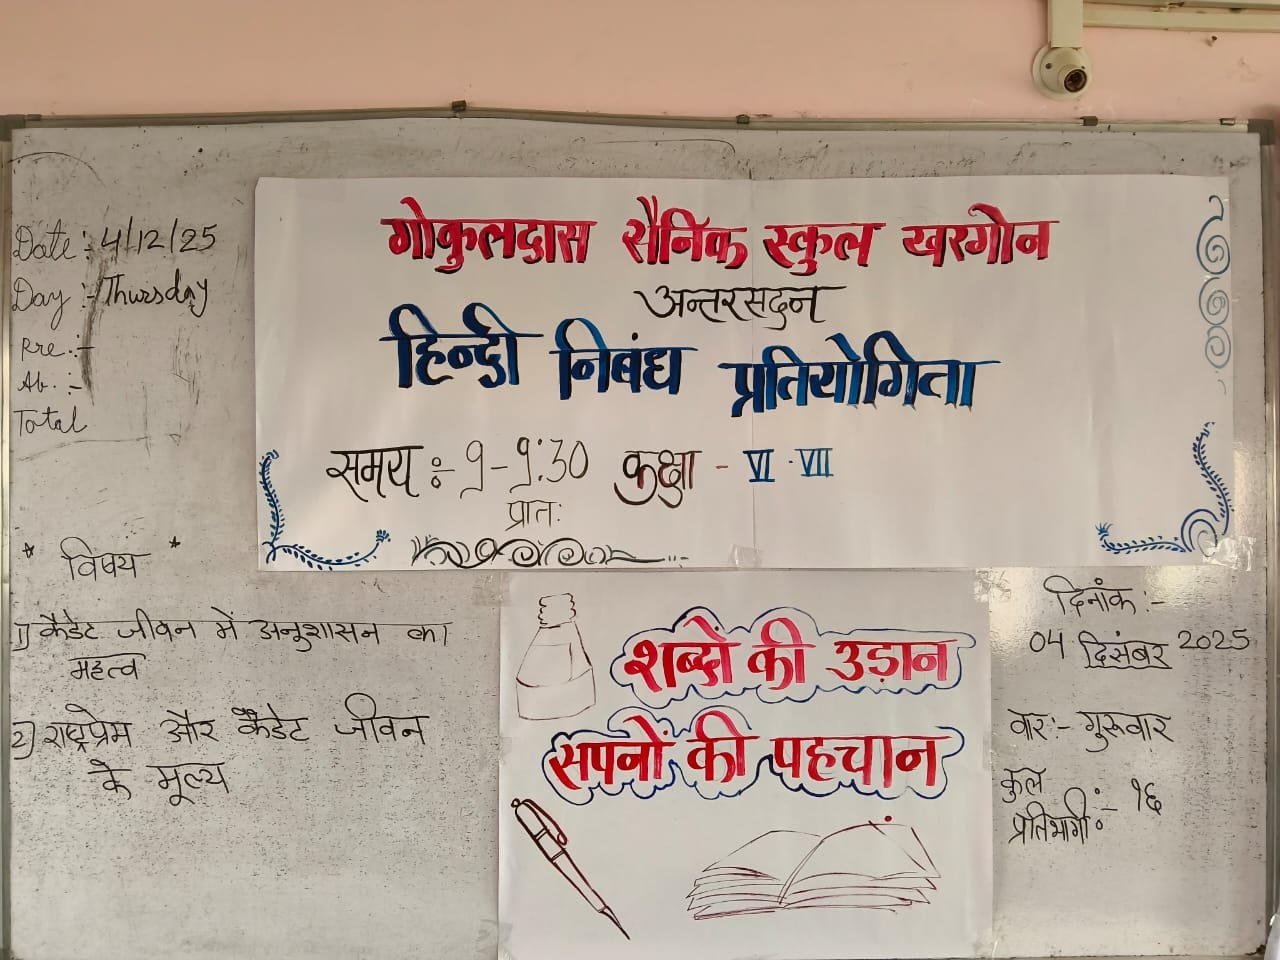 Date :- 4/12/25
Day :- Thursday
Pre :-
Ab. :-
Total
गोकुलदास सैनिक स्कुल खरगोन
अन्तरसदन
हिन्दी निबंध प्रतियोगिता
समय :- 9-9:30 कक्षा - VI - VII
प्रातः
* विषय *
1) कैडेट जीवन में अनुशासन का
महत्व
2) राष्ट्रप्रेम और कैडेट जीवन
के मूल्य
शब्दों की उड़ान
सपनों की पहचान
दिनांक :-
04 दिसंबर 2025
वार :- गुरूवार
कुल
प्रतिभागी :- १६